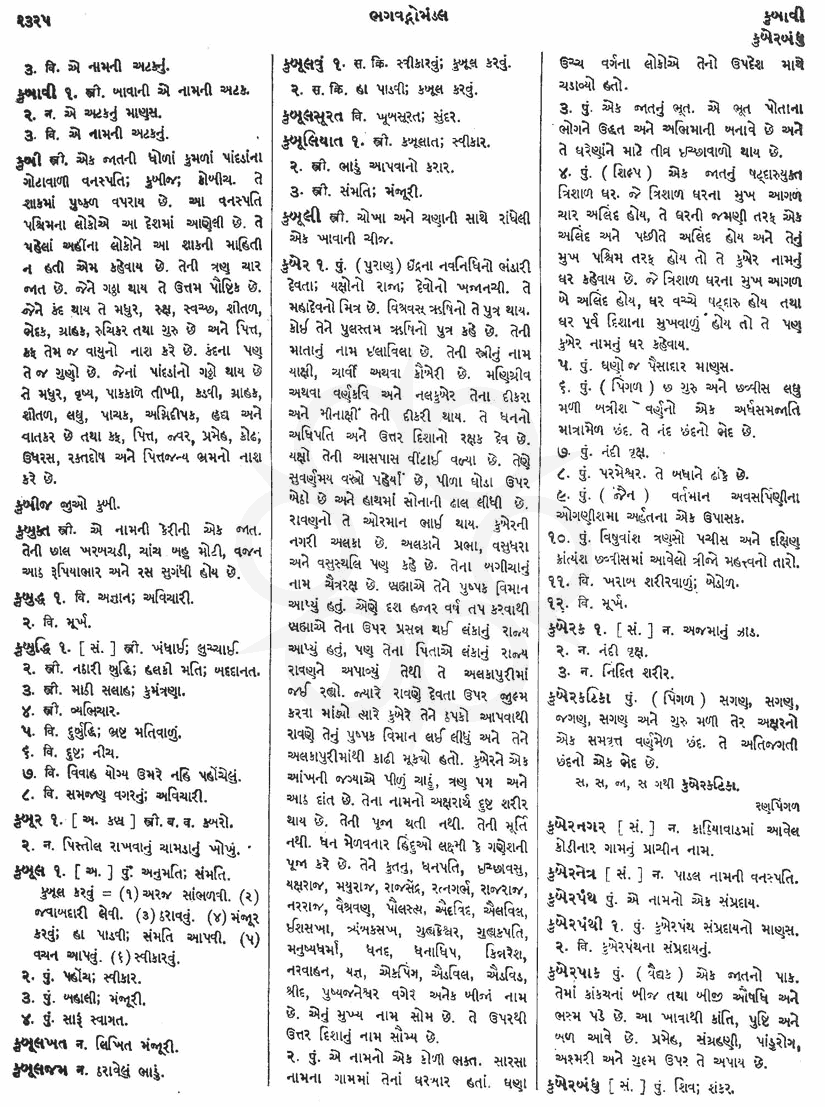 ૨૩૨૫
ભગવદ્ગોમંડલ
કુબાવી
કુબેરબંધુ
૩. વિ. એ નામની અટકનું.
કુબાવી ૧. સ્ત્રી. બાવાની એ નામની અટક.
૨. ન. એ અટકનું માણસ.
૩. વિ. એ નામની અટકનું.
કુબી સ્ત્રી. એક જાતની ધોળાં કુમળાં પાંદડાંના
ગોટાવાળી વનસ્પતિ; કુબીજ; કોબીચ. તે
શાકમાં પુષ્કળ વપરાય છે. આ વનસ્પતિ
પશ્ચિમના લોકોએ આ દેશમાં આણેલી છે. તે
પહેલાં અહીંના લોકોને આ શાકની માહિતી
ન હતી એમ કહેવાય છે. તેની ત્રણ ચાર
જાત છે. જેને ગઠ્ઠા થાય તે ઉત્તમ પૌષ્ટિક છે.
જેને કંદ થાય તે મધુર, રુક્ષ, સ્વચ્છ, શીતળ,
ભેદક, ગ્રાહક, રુચિકર તથા ગુરુ છે અને પિત્ત,
કફ તેમ જ વાયુનો નાશ કરે છે. કંદના પણ
તે જ ગુણો છે. જેનાં પાંદડાંનો ગઠ્ઠો થાય છે
તે મધુર, વૃષ્ય, પાકકાળે તીખી, કડવી, ગ્રાહક,
શીતળ, લઘુ, પાચક, અગ્નિદીપક, હૃદ્ય અને
વાતકર છે તથા કફ, પિત્ત, જ્વર, પ્રમેહ, કોઢ;
ઉધરસ, રક્તદોષ અને પિત્તજન્ય ભ્રમનો નાશ
કરે છે.
કુબીજ જુઓ કુબી.
કુબુક્ત સ્ત્રી. એ નામની કેરીની એક જાત.
તેની છાલ ખરબચડી, ચાંચ બહુ મોટી, વજન
આઠ રૂપિયાભાર અને રસ સુગંધી હોય છે.
કુબુદ્ધ ૧. વિ. અજ્ઞાન; અવિચારી.
૨. વિ. મૂર્ખ.
કુબુદ્ધિ ૧. [ સં. ] સ્ત્રી. ખંધાઈ; લુચ્ચાઈ.
૨. સ્ત્રી. નઠારી બુદ્ધિ; હલકી મતિ; બદદાનત.
૩. સ્ત્રી. માઠી સલાહ; કુમંત્રણા.
૪. સ્ત્રી. વ્યભિચાર.
૫. વિ. દુર્બુદ્ધિ; ભ્રષ્ટ મતિવાળું.
૬. વિ. દુષ્ટ; નીચ.
૭. વિ. વિવાહ યોગ્ય ઉમરે નહિ પહોંચેલું.
૮. વિ. સમજણ વગરનું; અવિચારી.
કુબૂર ૧. [ અ. કબ્ર ] સ્ત્રી. બ. વ. કબરો.
૨. ન. પિસ્તોલ રાખવાનું ચામડાનું ખોખું.
કુબૂલ ૧. [ અ. ] પું. અનુમતિ; સંમતિ.
કુબૂલ કરવું = (૧) અરજ સાંભળવી. (૨)
જવાબદારી લેવી. (૩) ઠરાવવું. (૪) મંજૂર
કરવું; હા પાડવી; સંમતિ આપવી. (૫)
વચન આપવું. (૬) સ્વીકારવું.
૨. પું. પહોંચ; સ્વીકાર.
૩. પું. બહાલી; મંજૂરી.
૪. પું. સારું સ્વાગત.
કુબૂલખત ન. લિખિત મંજૂરી.
કુબૂલજમ ન. ઠરાવેલું ભાડું.
કુબૂલવું ૧. સ. ક્રિ. સ્વીકારવું; કબૂલ કરવું.
૨. સ. ક્રિ. હા પાડવી; કબૂલ કરવું.
કુબૂલસૂરત વિ. ખૂબસૂરત; સુંદર.
કુબૂલિયાત ૧. સ્ત્રી. કબૂલાત; સ્વીકાર.
૨. સ્ત્રી. ભાડું આપવાનો કરાર.
૩. સ્ત્રી. સંમતિ; મંજૂરી.
કુબૂલી સ્ત્રી. ચોખા અને ચણાની સાથે રાંધેલી
એક ખાવાની ચીજ.
કુબેર ૧. પું. (પુરાણ) ઇંદ્રના નવનિધિનો ભંડારી
દેવતા; યક્ષોનો રાજા; દેવોનો ખજાનચી. તે
મહાદેવનો મિત્ર છે. વિશ્રવસ્ ઋષિનો તે પુત્ર થાય.
કોઈ તેને પુલસ્તમ ઋષિનો પુત્ર કહે છે. તેની
માતાનું નામ ઇલાવિલા છે. તેની સ્ત્રીનું નામ
યાક્ષી, ચાર્વી અથવા કૌબેરી છે. મણિગ્રીવ
અથવા વર્ણકવિ અને નલકુબેર તેના દીકરા
અને મીનાક્ષી તેની દીકરી થાય. તે ધનનો
અધિપતિ અને ઉત્તર દિશાનો રક્ષક દેવ છે.
યક્ષો તેની આસપાસ વીંટાઈ વળ્યા છે. તેણે
સુવર્ણમય વસ્ત્રો પહેર્યાં છે, પીળા ઘોડા ઉપર
બેઠો છે અને હાથમાં સોનાની ઢાલ લીધી છે.
રાવણનો તે ઓરમાન ભાઈ થાય. કુબેરની
નગરી અલકા છે. અલકાને પ્રભા, વસુધરા
અને વસુસ્થલિ પણ કહે છે. તેના બગીચાનું
નામ ચૈત્રરથ છે. બ્રહ્માએ તેને પુષ્પક વિમાન
આપ્યું હતું. એણે દશ હજાર વર્ષ તપ કરવાથી
બ્રહ્માએ તેના ઉપર પ્રસન્ન થઈ લંકાનું રાજ્ય
આપ્યું હતું, પણ તેના પિતાએ લંકાનું રાજ્ય
રાવણને અપાવ્યું તેથી તે અલકાપુરીમાં
જઈ રહ્યો. જ્યારે રાવણે દેવતા ઉપર જુલ્મ
કરવા માંડ્યો ત્યારે કુબેરે તેને ઠપકો આપવાથી
રાવણે તેનું પુષ્પક વિમાન લઈ લીધું અને તેને
અલકાપુરીમાંથી કાઢી મૂક્યો હતો. કુબેરને એક
આંખની જગ્યાએ પીળું ચાઠું, ત્રણ પગ અને
આઠ દાંત છે. તેના નામનો અક્ષરાર્થ દુષ્ટ શરીર
થાય છે. તેની પૂજા થતી નથી. તેની મૂર્તિ
નથી. ધન મેળવનાર હિંદુઓ લક્ષ્મી કે ગણેશની
પૂજા કરે છે. તેને કુતનુ, ધનપતિ, ઇચ્છાવસુ,
યક્ષરાજ, મયુરાજ, રાજસેંદ્ર, રત્નગર્ભ, રાજરાજ,
નરરાજ, વૈશ્રવણ, પૌલસ્ત્ય, ઐદવિદ, ઐલવિલ,
ઈશસખા, ત્ર્યંબકસખ, ગુહ્યકેશ્વર, ગુહ્યકપતિ,
મનુષ્યધર્મા, ધનદ, ધનાધિપ, કિન્નરેશ,
નરવાહન, યજ્ઞ, એકપિંગ, ઐડવિલ, ઐડવિડ,
શ્રીદ, પુણ્યજનેશ્વર વગેર અનેક બીજાં નામ
છે. એનું મુખ્ય નામ સોમ છે. તે ઉપરથી
ઉત્તર દિશાનું નામ સૌમ્ય છે.
૨. પું. એ નામનો એક કોળી ભક્ત. સારસા
નામના ગામમાં તેનાં ઘરબાર હતાં. ઘણા
ઉચ્ચ વર્ગના લોકોએ તેનો ઉપદેશ માથે
ચડાવ્યો હતો.
૩. પું. એક જાતનું ભૂત. એ ભૂત પોતાના
ભોગને ઉદ્ધત અને અભિમાની બનાવે છે અને
તે ઘરેણાંને માટે તીવ્ર ઇચ્છાવાળો થાય છે.
૪. પું. ( શિલ્પ ) એક જાતનું ષટ્દારુયુક્ત
ત્રિશાળ ઘર. જે ત્રિશાળ ઘરના મુખ આગળ
ચાર અલિંદ હોય, તે ઘરની જમણી તરફ એક
અલિંદ અને પછીતે અલિંદ હોય અને તેનું
મુખ પશ્ચિમ તરફ હોય તો તે કુબેર નામનું
ઘર કહેવાય છે. જે ત્રિશાળ ઘરના મુખ આગળ
બે અલિંદ હોય, ઘર વચ્ચે ષટ્દારુ હોય તથા
ઘર પૂર્વ દિશાના મુખવાળું હોય તો તે પણ
કુબેર નામનું ઘર કહેવાય.
૫. પું. ઘણો જ પૈસાદાર માણસ.
૬. પું. ( પિંગળ ) છ ગુરુ અને છવ્વીસ લઘુ
મળી બત્રીશ વર્ણનો એક અર્ધસમજાતિ
માત્રામેળ છંદ. તે નંદ છંદનો ભેદ છે.
૭. પું. નંદી વૃક્ષ.
૮. પું. પરમેશ્વર. તે બધાને ઢાંકે છે.
૯. પું. ( જૈન ) વર્તમાન અવસર્પિણીના
ઓગણીશમા અર્હતના એક ઉપાસક.
૧૦. પું. વિષુવાંશ ત્રણસો પચીસ અને દક્ષિણ
ક્રાંત્યંશ છવ્વીસમાં આવેલો ત્રીજે મહત્ત્વનો તારો.
૧૧. વિ. ખરાબ શરીરવાળું; બેડોળ.
૧૨. વિ. મૂર્ખ.
કુબેરક ૧. [ સં. ] ન. અજમાનું ઝાડ.
૨. ન. નંદી વૃક્ષ.
૩. ન. નિંદિત શરીર.
કુબેરકટિકા પું. ( પિંગળ ) સગણ, સગણ,
જગણ, સગણ અને ગુરુ મળી તેર અક્ષરનો
એક સમવૃત્ત વર્ણમેળ છંદ. તે અતિજગતી
છંદનો એક ભેદ છે.
સ, સ, જા, સ ગથી કુબેરકટિકા.
રણપિંગળ
કુબેરનગર [ સં. ] ન. કાઠિયાવાડમાં આવેલ
કોડીનાર ગામનું પ્રાચીન નામ.
કુબેરનેત્ર [ સં. ] ન. પાડલ નામની વનસ્પતિ.
કુબેરપંથ પું. એ નામનો એક સંપ્રદાય.
કુબેરપંથી ૧. પું. કુબેરપંથ સંપ્રદાયનો માણસ.
૨. વિ. કુબેરપંથના સંપ્રદાયનું.
કુબેરપાક પું. ( વૈદ્યક ) એક જાતનો પાક.
તેમાં કાંકચનાં બીજ તથા બીજી ઔષધિ અને
ભસ્મ પડે છે. આ ખાવાથી કાંતિ, પુષ્ટિ અને
બળ આવે છે. પ્રમેહ, સંગ્રહણી, પાંડુરોગ,
અશ્મરી અને ગુલ્મ ઉપર તે અપાય છે.
કુબેરબંધુ [ સં. ] પું. શિવ; શંકર.